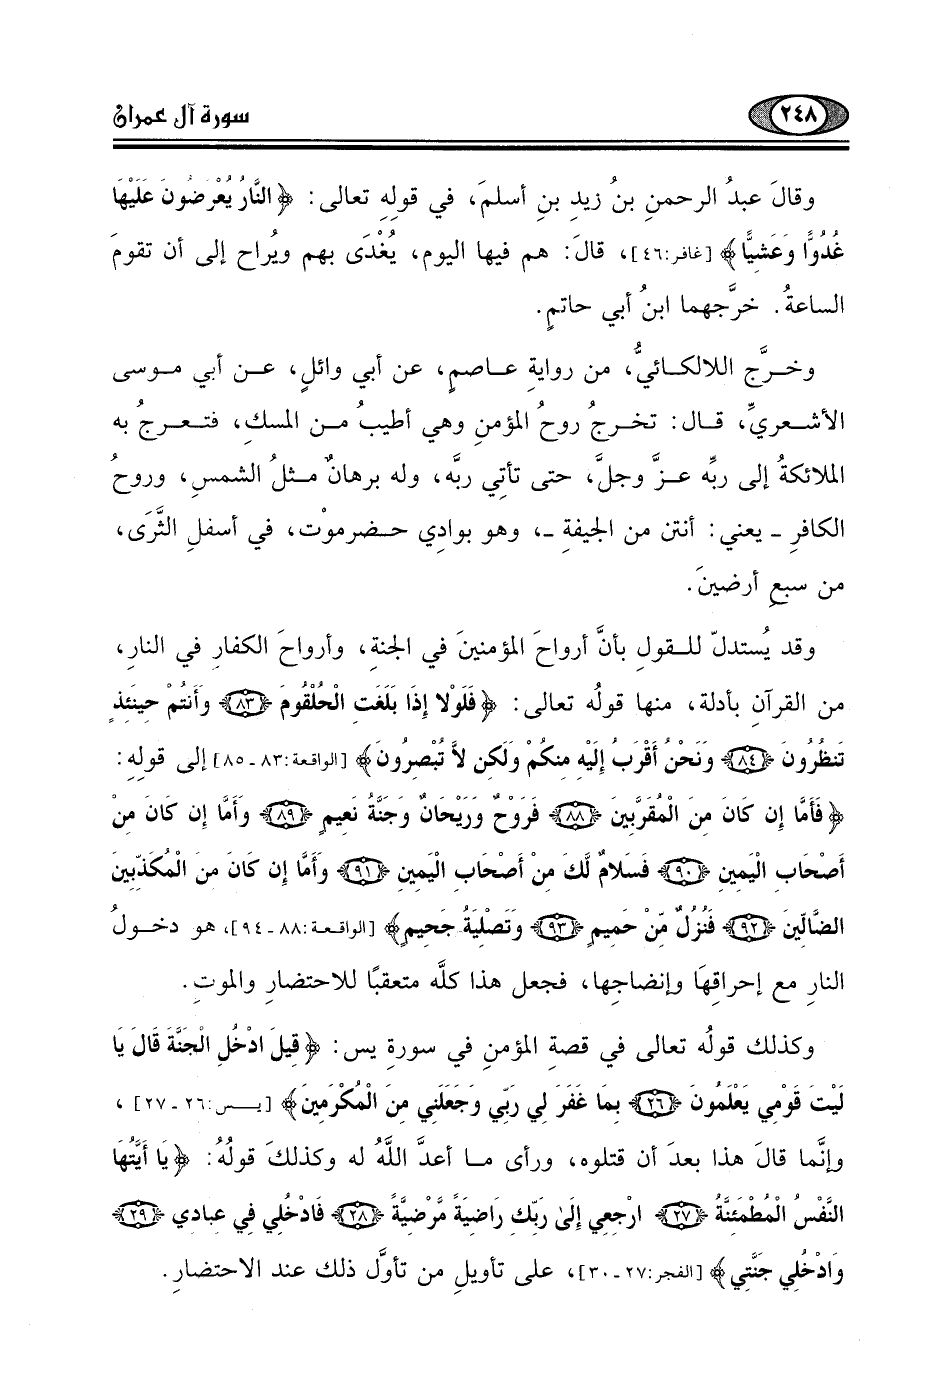 ٢٤٨ سورة آل عمران
وقالَ عبدُ الرحمنِ بنُ زيدِ بنِ أسلمَ، في قولِهِ تعالى: ﴿النَّارُ يُعْرَضُونَ عَلَيْهَا
غُدُوًّا وَعَشِيًّا﴾ [غافر:٤٦]، قالَ: هم فيها اليوم، يُغْدَى بهم ويُراح إلى أن تقومَ
الساعةُ. خرَّجهما ابنُ أبي حاتمٍ.
وخرَّج اللالكائيُّ، من روايةِ عاصمٍ، عن أبي وائلٍ، عن أبي موسى
الأشعريِّ، قال: تخرجُ روحُ المؤمنِ وهي أطيبُ من المسك، فتعرجُ به
الملائكةُ إلى ربِّه عزَّ وجلَّ، حتى تأتي ربَّه، وله برهانٌ مثلُ الشمسِ، وروحُ
الكافرِ ـ يعني: أنتن من الجيفةِ ـ، وهو بوادي حضرموْت، في أسفلِ الثَّرَى،
من سبعِ أرضينَ.
وقد يُستدلّ للقولِ بأنَّ أرواحَ المؤمنينَ في الجنة، وأرواحَ الكفارِ في النارِ،
من القرآنِ بأدلة، منها قولُه تعالى: ﴿فَلَوْلا إِذَا بَلَغَتِ الْحُلْقُومَ ﴿٨٣﴾ وَأَنتُمْ حِينَئِذٍ
تَنظُرُونَ ﴿٨٤﴾ وَنَحْنُ أَقْرَبُ إِلَيْهِ مِنكُمْ وَلَكِن لاَّ تُبْصِرُونَ﴾ [الواقعة:٨٣ـ٨٥] إلى قولِهِ:
﴿فَأَمَّا إِن كَانَ مِنَ الْمُقَرَّبِينَ ﴿٨٨﴾ فَرَوْحٌ وَرَيْحَانٌ وَجَنَّةُ نَعِيمٍ ﴿٨٩﴾ وَأَمَّا إِن كَانَ مِنْ
أَصْحَابِ الْيَمِينِ ﴿٩٠﴾ فَسَلامٌ لَّكَ مِنْ أَصْحَابِ الْيَمِينِ ﴿٩١﴾ وَأَمَّا إِن كَانَ مِنَ الْمُكَذِّبِينَ
الضَّالِّينَ ﴿٩٢﴾ فَنُزُلٌ مِّنْ حَمِيمٍ ﴿٩٣﴾ وَتَصْلِيَةُ جَحِيمٍ﴾ [الواقعة:٨٨ـ٩٤]، هو دخولُ
النارِ مع إحراقِهَا وإنضاجِها، فجعل هذا كلَّه متعقبًا للاحتضارِ والموتِ.
وكذلك قولُه تعالى في قصةِ المؤمنِ في سورةِ يس: ﴿قِيلَ ادْخُلِ الْجَنَّةَ قَالَ يَا
لَيْتَ قَوْمِي يَعْلَمُونَ ﴿٢٦﴾ بِمَا غَفَرَ لِي رَبِّي وَجَعَلَنِي مِنَ الْمُكْرَمِينَ﴾ [يـس:٢٦ـ٢٧]،
وإنَّما قالَ هذا بعدَ أن قتلوه، ورأى ما أعدَّ اللَّهُ له وكذلكَ قولُهُ: ﴿يَا أَيَّتُهَا
النَّفْسُ الْمُطْمَئِنَّةُ ﴿٢٧﴾ ارْجِعِي إِلَىٰ رَبِّكِ رَاضِيَةً مَّرْضِيَّةً ﴿٢٨﴾ فَادْخُلِي فِي عِبَادِي ﴿٢٩﴾
وَادْخُلِي جَنَّتِي﴾ [الفجر:٢٧ـ٣٠]، على تأويلِ من تأوَّل ذلك عند الاحتضارِ.